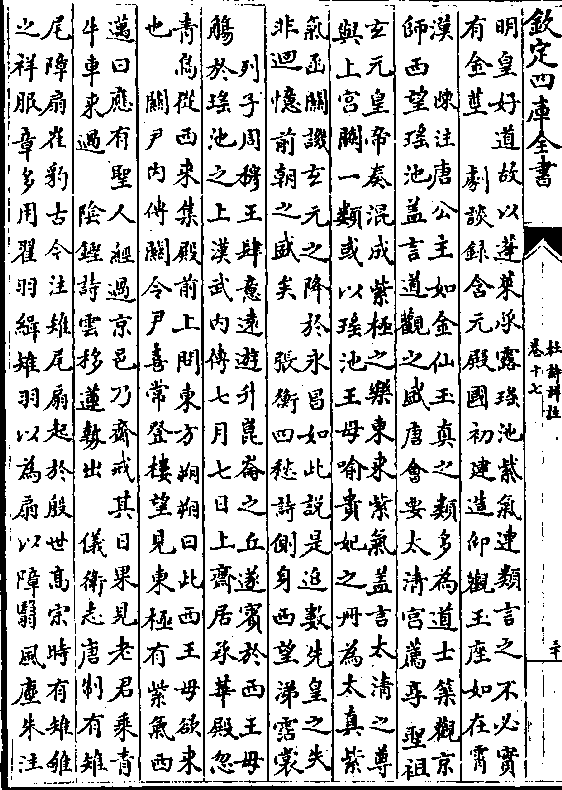 欽定四庫全書
杜詩詳註
卷十七
二十
明皇好道故以蓬萊承露瑤池紫氣連類言之不必實
有金莖　劇談録含元殿國初建造仰觀玉座如在霄
漢　疎注唐公主如金仙玉真之類多為道士築觀京
師西望瑤池蓋言道觀之盛唐會要太清宫薦享聖祖
玄元皇帝奏混成紫極之樂東來紫氣蓋言太清之尊
與上宫闕一類或以瑤池王母喻貴妃之冊為太真紫
氣函關譏玄元之降於永昌如此説是追數先皇之失
非迴憶前朝之盛矣　張衡四愁詩側身西望涕霑裳
列子周穆王肆意遠遊升崑崙之丘遂賓於西王母
觴於瑤池之上漢武内傳七月七日上齋居承華殿忽
青鳥從西來集殿前上問東方朔朔曰此西王母欲來
也　關尹内傳關令尹喜常登樓望見東極有紫氣西
邁曰應有聖人經過京邑乃齋戒其日果見老君乘青
牛車來過　陰鏗詩雲移蓮勢出　儀衛志唐制有雉
尾障扇崔豹古今注雉尾扇起於殷世高宗時有雉雊
之祥服章多用翟羽緝雉羽以為扇以障翳風塵朱注